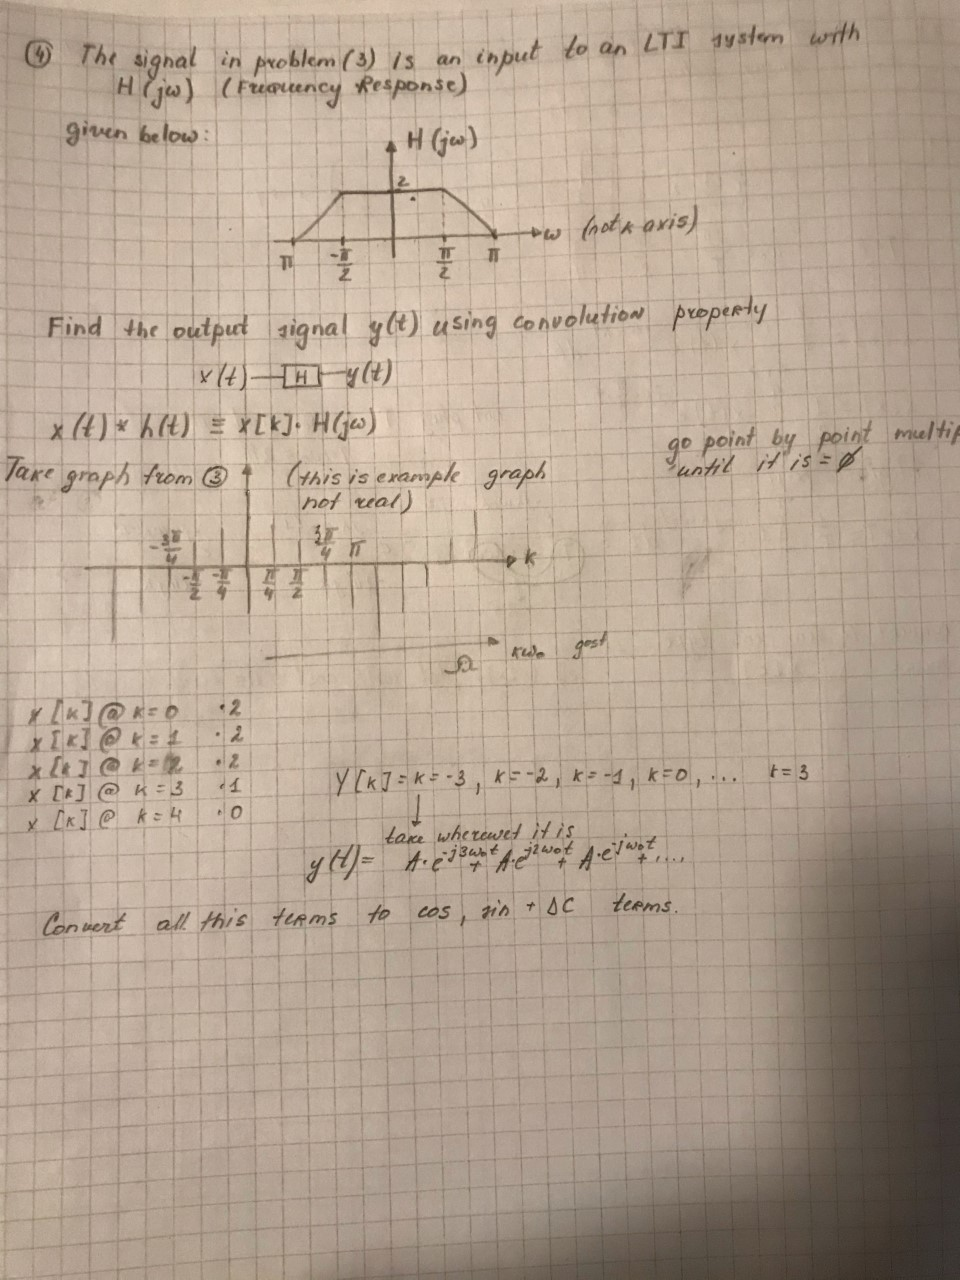 ④ The signal in problem (3) is an input to an LTI system with
H(jω) (Frequency Response)
given below:
H(jω)
2
ω (not k axis)
π -π/2 π/2 π
Find the output signal y(t) using convolution property
x(t) H y(t)
x(t) * h(t) ≡ x[k]. H(jω)
go point by point multip
until it is = ∅
Take graph from ③ (this is example graph
not real)
-3π/4 3π/4 π
k
-π/2 -π/4 π/4 π/2
kω₀
Ω
x[k] @ k=0 ·2
x[k] @ k=1 ·2
x[k] @ k=2 ·2
x[k] @ k=3 ·1
x[k] @ k=4 ·0
Y[k] = k=-3, k=-2, k=-1, k=0, ... k=3
↓
take wherewet it is
y(t)= A·e^-j3ω₀t + A·e^j2ω₀t + A·e^-jω₀t + ...
Convert all this terms to cos, sin + DC terms.